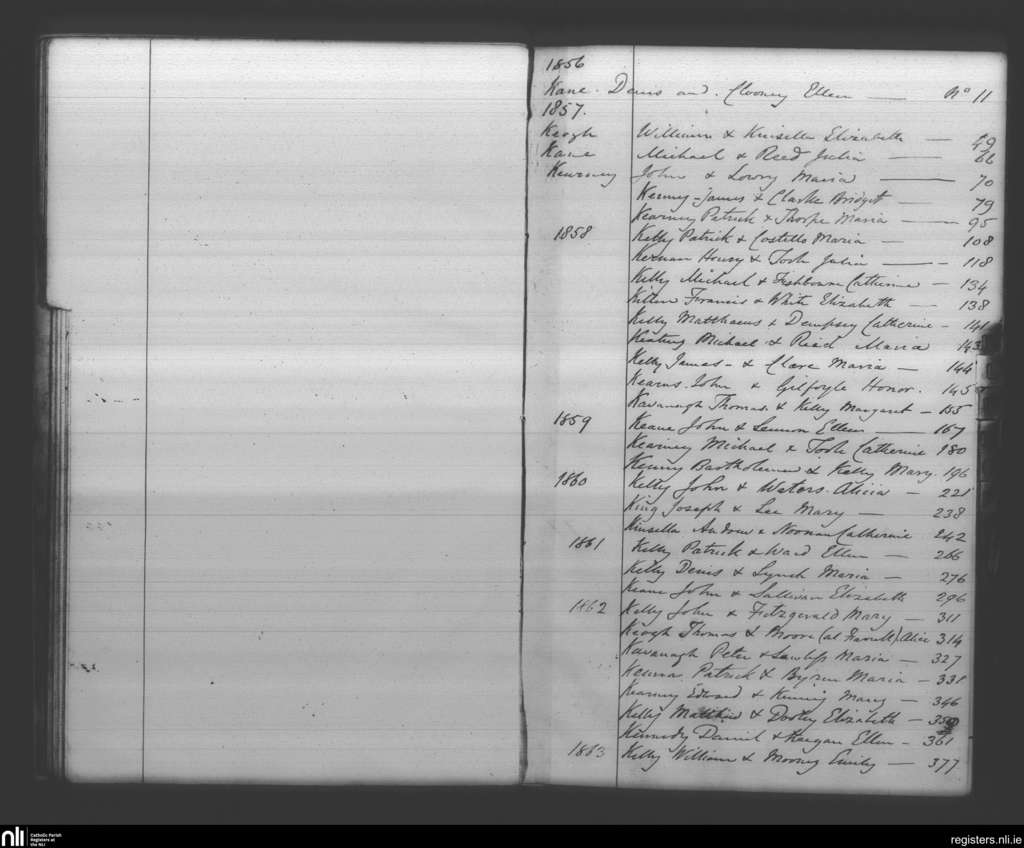 1856
Kane. Denis and. Clooney Ellen — No 11
1857.
Keogh William & Kinsella Elizabeth — 49
Kane Michael & Reed Julia — 66
Kearney John & Lowry Maria — 70
Kenny James & Clarke Bridget — 79
Kearney Patrick & Thorpe Maria — 95
1858 Kelly Patrick & Costello Maria — 108
Kernan Henry & Tosh Julia — 118
Kelly Michael & Fishbourne Catherine — 134
Francis & White Elizabeth — 138
Kelly Matthaeus & Dempsey Catherine - 141
Keating Michael & Reed Maria 143
Kelly James - & Clare Maria — 144
Kearns. John & Gilfoyle Honor. 145
Kavanagh Thomas. & Kelly Margaret — 155
1859 Keane John & Lennon Ellen — 167
Kearney Michael & Tosh Catherine 180
Kenny Bartholomew & Kelly Mary. 196
1860 Kelly John & Waters. Alicia — 221
King Joseph & Lee Mary — 238
Kinsella Andrew & Noonan Catherine 242
1861 Kelly Patrick & Ward Ellen — 266
Kelly Denis & Lynch Maria — 276
Keane John & Sullivan Elizabeth 296
1862 Kelly John & Fitzgerald Mary — 311
Keogh Thomas & Moore (al ) Alice 314
Kavanagh Peter & Lawless Maria — 327
Kenna Patrick & Byrne Maria — 331
Kearney Edward & Mary — 346
Kelly Matthew & Dooley Elizabeth —
Kennedy Daniel & Keegan Ellen - 361
1863 Kelly William & Mooney Emily — 377
nli Catholic Parish
Registers at
the NLI
registers.nli.ie